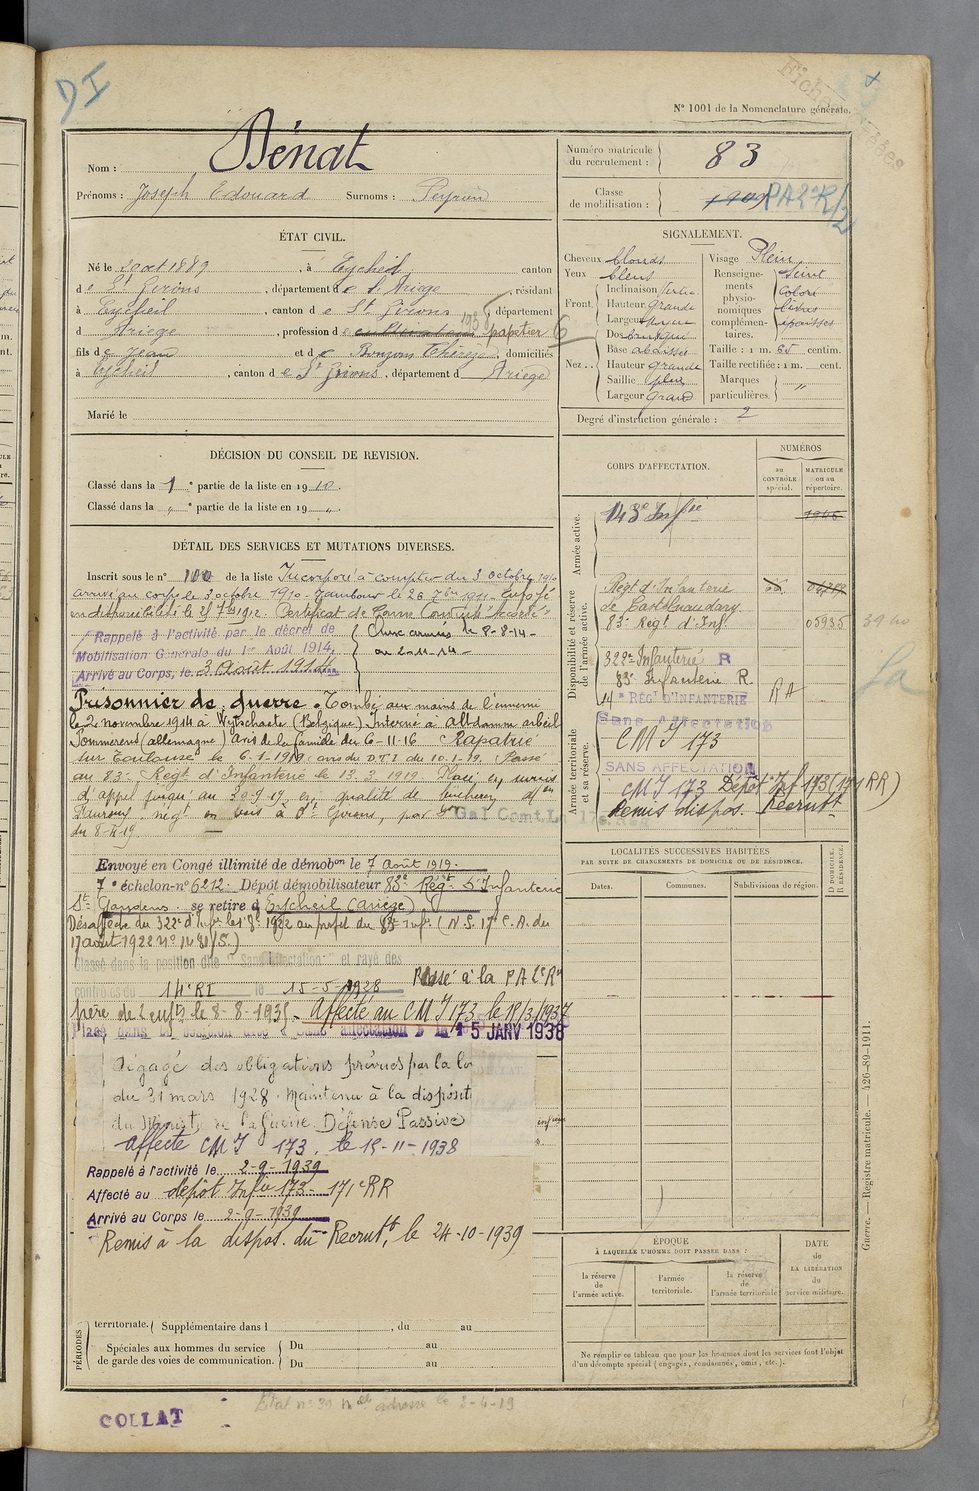 DI
N° 1001 de la Nomenclature générale.
Nom : Dénat
Prénoms : Joseph Edouard Surnoms : Peyriu
Numéro matricule du recrutement : 83
Classe de mobilisation : 1909 PA2eR/2
ÉTAT CIVIL.
Né le 29 oct 1889, à Eycheil canton
de St Girons, département de l'Ariege, résidant
à Eycheil, canton de St Girons, département
d Ariege, profession de cultivateur papetier
fils de Jean et de Bouzom Thérèze, domiciliés
à Eycheil, canton de St Girons, département d Ariege
Marié le
SIGNALEMENT.
Cheveux blonds
Yeux bleus
Front. Inclinaison vertic
Hauteur grande
Largeur moyen
Nez Dos
Base abaissée
Hauteur grande
Saillie
Largeur grand
Visage Plein
Renseignements physionomiques complémentaires. teint
coloré
lèvres
épaisses
Taille : 1 m. 65 centim.
Taille rectifiée : 1 m. cent.
Marques particulières. "
Degré d'instruction générale : 2
DÉCISION DU CONSEIL DE REVISION.
Classé dans la 1e partie de la liste en 1910.
Classé dans la " e partie de la liste en 19 ".
DÉTAIL DES SERVICES ET MUTATIONS DIVERSES.
Inscrit sous le n° 100 de la liste Incorporé à compter du 3 octobre 1910
arrivé au corps le 3 octobre 1910. Tambour le 26 7bre 1911. Envoyé
en disponibilité le 25 7bre 1912. Certificat de bonne conduite accordé
Rappelé à l'activité par le décret de
Mobilisation Générale du 1er Août 1914,
Arrivé au Corps, le 3 Août 1914
Aux armées le 8-8-14
au 2-11-14
Prisonnier de guerre. Tombé aux mains de l'ennemi
le 2 novembre 1914 à Wytschaete (Belgique). Interné à altdamm arbeit
Pommeren (allemagne) avis de la famille du 6-11-16 Rapatrié
sur Toulouse le 6-1-1919 : avis du D.T.I du 10-1-19. Passé
au 83e Regt d'Infanterie le 13.3 1919. Placé en sursis
d'appel jusqu'au 30-9-19 en qualité de bucheron
négt en bois à St Girons, par
Gal Comt. La 17e Rég
du 8-4-19
Envoyé en Congé illimité de démobon le 7 Août 1919.
7e échelon-n° 6212. Dépôt démobilisateur 83e Régt d'Infanterie
St Gaudens. se retire à Eycheil (Ariège)
Désaffecté du 322e d'Infie le 1922 au profit du 83e Infie (N.S. 17e C.A. du
17 août 1922 N° 1481/S.)
Classé dans la position dite "Sans affectation" et rayé des
contrôles du 14e RI le 15-5-1928 Passé à la PA2eR
père de 2 enfts le 8-8-1935. Affecté au CMI 173 le 15/3/1937
15 JANV 1938
Dégagé des obligations prévues par la loi
du 31 mars 1928. Maintenu à la disposit
du Minist. de la Guerre. Défense Passive
Affecté CMI 173. le 15-11-1938
Rappelé à l'activité le 2-9-1939
Affecté au dépôt Infie 173 - 171e RR
Arrivé au Corps le 2-9-1939
Remis à la dispos. du Recrutt, le 24-10-1939
PÉRIODES
territoriale. Supplémentaire dans l , du au
Spéciales aux hommes du service de garde des voies de communication. Du au
Du au
CORPS D'AFFECTATION.
NUMÉROS
au CONTRÔLE spécial.
MATRICULE ou au répertoire.
Armée active.
143e Infie
Disponibilité et réserve de l'armée active.
Régt d'Infanterie
de Castelnaudary
83e Régt d'Inf. 05935
322e Infanterie R
83e Infanterie R. RA
14e REGt D'INFANTERIE
Armée territoriale et sa réserve.
Sans Affectation
CMI 173
SANS AFFECTATION
CMI 173 Dépôt Inf 173 (171 RR)
Remis dispos. Recrutt
LOCALITÉS SUCCESSIVES HABITÉES
PAR SUITE DE CHANGEMENTS DE DOMICILE OU DE RÉSIDENCE.
Dates. Communes. Subdivisions de région. D DOMICILE. R RÉSIDENCE.
ÉPOQUE
À LAQUELLE L'HOMME DOIT PASSER DANS :
la réserve de l'armée active.
l'armée territoriale.
la réserve de l'armée territoriale
DATE de LA LIBÉRATION du service militaire.
Ne remplir ce tableau que pour les hommes dont les services font l'objet
d'un décompte spécial (engagés, condamnés, omis, etc.).
Guerre. — Registre matricule. — 426-89-1911.
COLLAT
Etat n° 39 Nelle adresse le 2-4-19